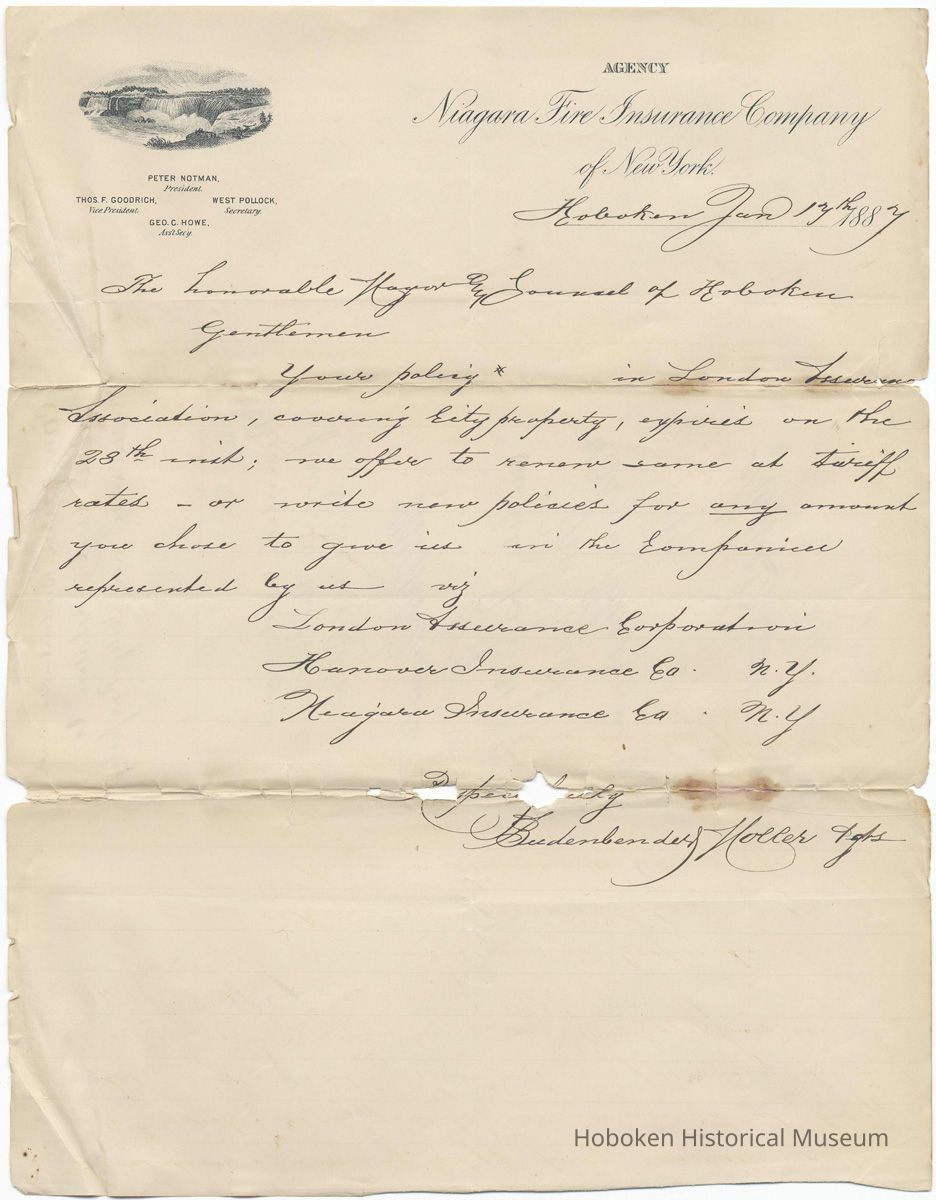 AGENCY
Niagara Fire Insurance Company
of New York.
PETER NOTMAN,
President.
THOS. F. GOODRICH,
Vice President.
WEST POLLOCK,
Secretary.
GEO. C. HOWE,
Asst Secy.
Hoboken Jan 17th 1887
The honorable Mayor & Counsel of Hoboken
Gentlemen
Your policy * in London Assurance
Association, covering City property, expires on the
23th inst; we offer to renew same at tariff
rates - or write new policies for any amount
you chose to give us in the Companies
represented by us viz
London Assurance Corporation
Hanover Insurance Co. N.Y.
Niagara Insurance Co. N.Y
Budenbender & Moller Agts
Hoboken Historical Museum